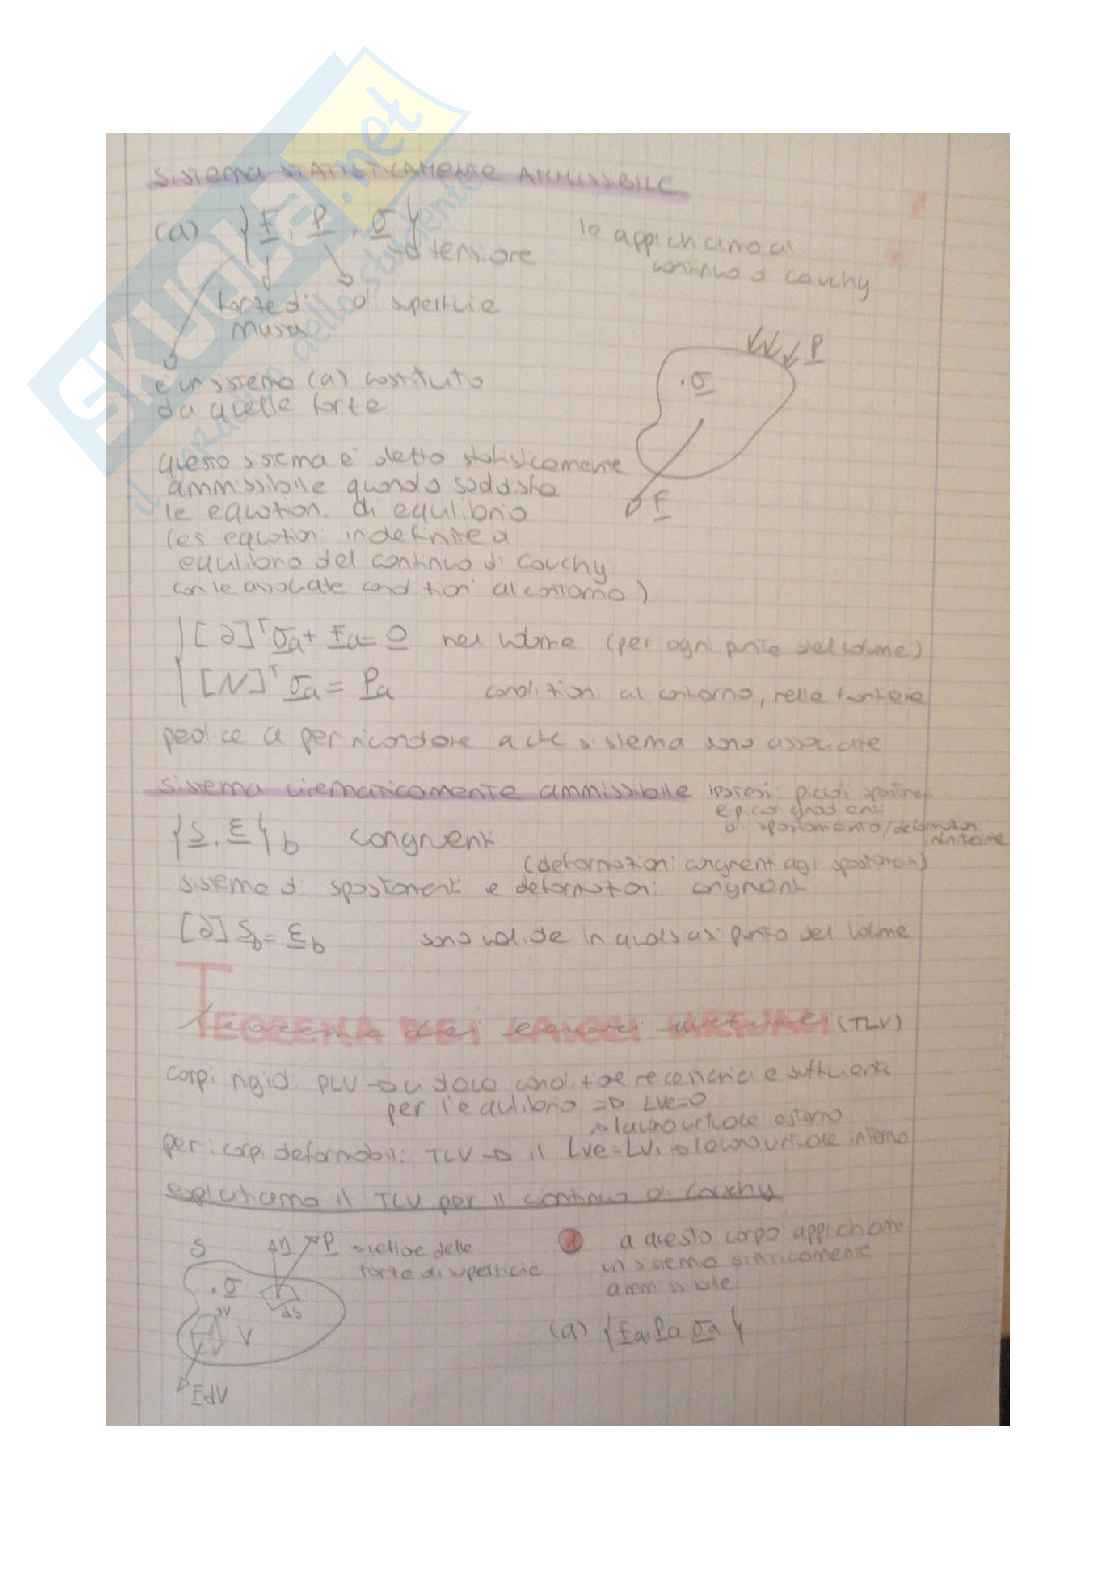 SKUOLA.net
SISTEMA STATICAMENTE AMMISSIBILE
(a) { F, P, σ }
lo applichiamo al
continuo di cauchy
tensione
forze di di superficie
massa
P
σ
è un sistema (a) costituito
da quelle forze
questo sistema è detto staticamente
ammissibile quando soddisfa
F
le equazioni di equilibrio
(es equazioni indefinite di
equilibrio del continuo di cauchy
con le associate condizioni al contorno)
[∂]ᵀσa + Fa = 0 nel volume (per ogni punto del volume)
[N]ᵀσa = Pa condizioni al contorno, nelle frontiere
pedice a per ricordare a che sistema sono associate
sistema cinematicamente ammissibile ipotesi: piccoli spostam.
e piccoli gradienti
di spostamento/deformazioni
{ S, ε }b congruenti
(deformazioni congruenti agli spostamenti)
sistema di spostamenti e deformazioni congruenti
[∂] Sb = εb sono valide in qualsiasi punto del volume
TEOREMA DEI LAVORI VIRTUALI (TLV)
corpi rigidi PLV → ci dava condizione necessaria e sufficiente
per l'equilibrio => Lve=0
→ lavoro virtuale esterno
per i corpi deformabili TLV → il Lve=Lvi → lavoro virtuale interno
esplicitiamo il TLV per il continuo di cauchy
S n P
forze di superficie
σ
dS
dV
V
FdV
1 a questo corpo applichiamo
un sistema staticamente
ammissibile
(a) { Fa, Pa, σa }